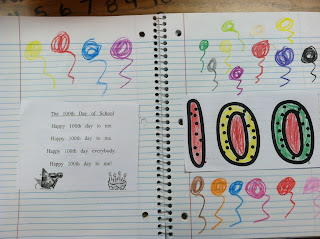 The 100th Day of School
Happy 100th day to me.
Happy 100th day to me.
Happy 100th day everybody.
Happy 100th day to me!
100